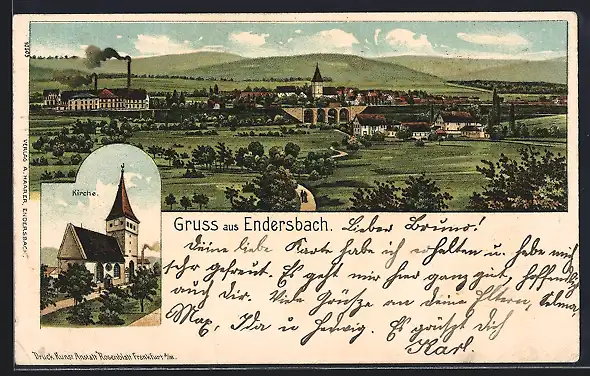 10503
VERLAG A. HAARER, ENDERSBACH.
Kirche.
Gruss aus Endersbach. Lieber Bruno!
Deine liebe Karte habe ich erhalten u. habe mich
sehr gefreut. Es geht mir hier ganz gut, hoffentlich
auch dir. Viele Grüsse an deine Eltern, Selma,
Max, Ida u. Hedwig. Es grüsst dich
Karl.
Druck Kunst Anstalt Rosenblatt Frankfurt a/M.